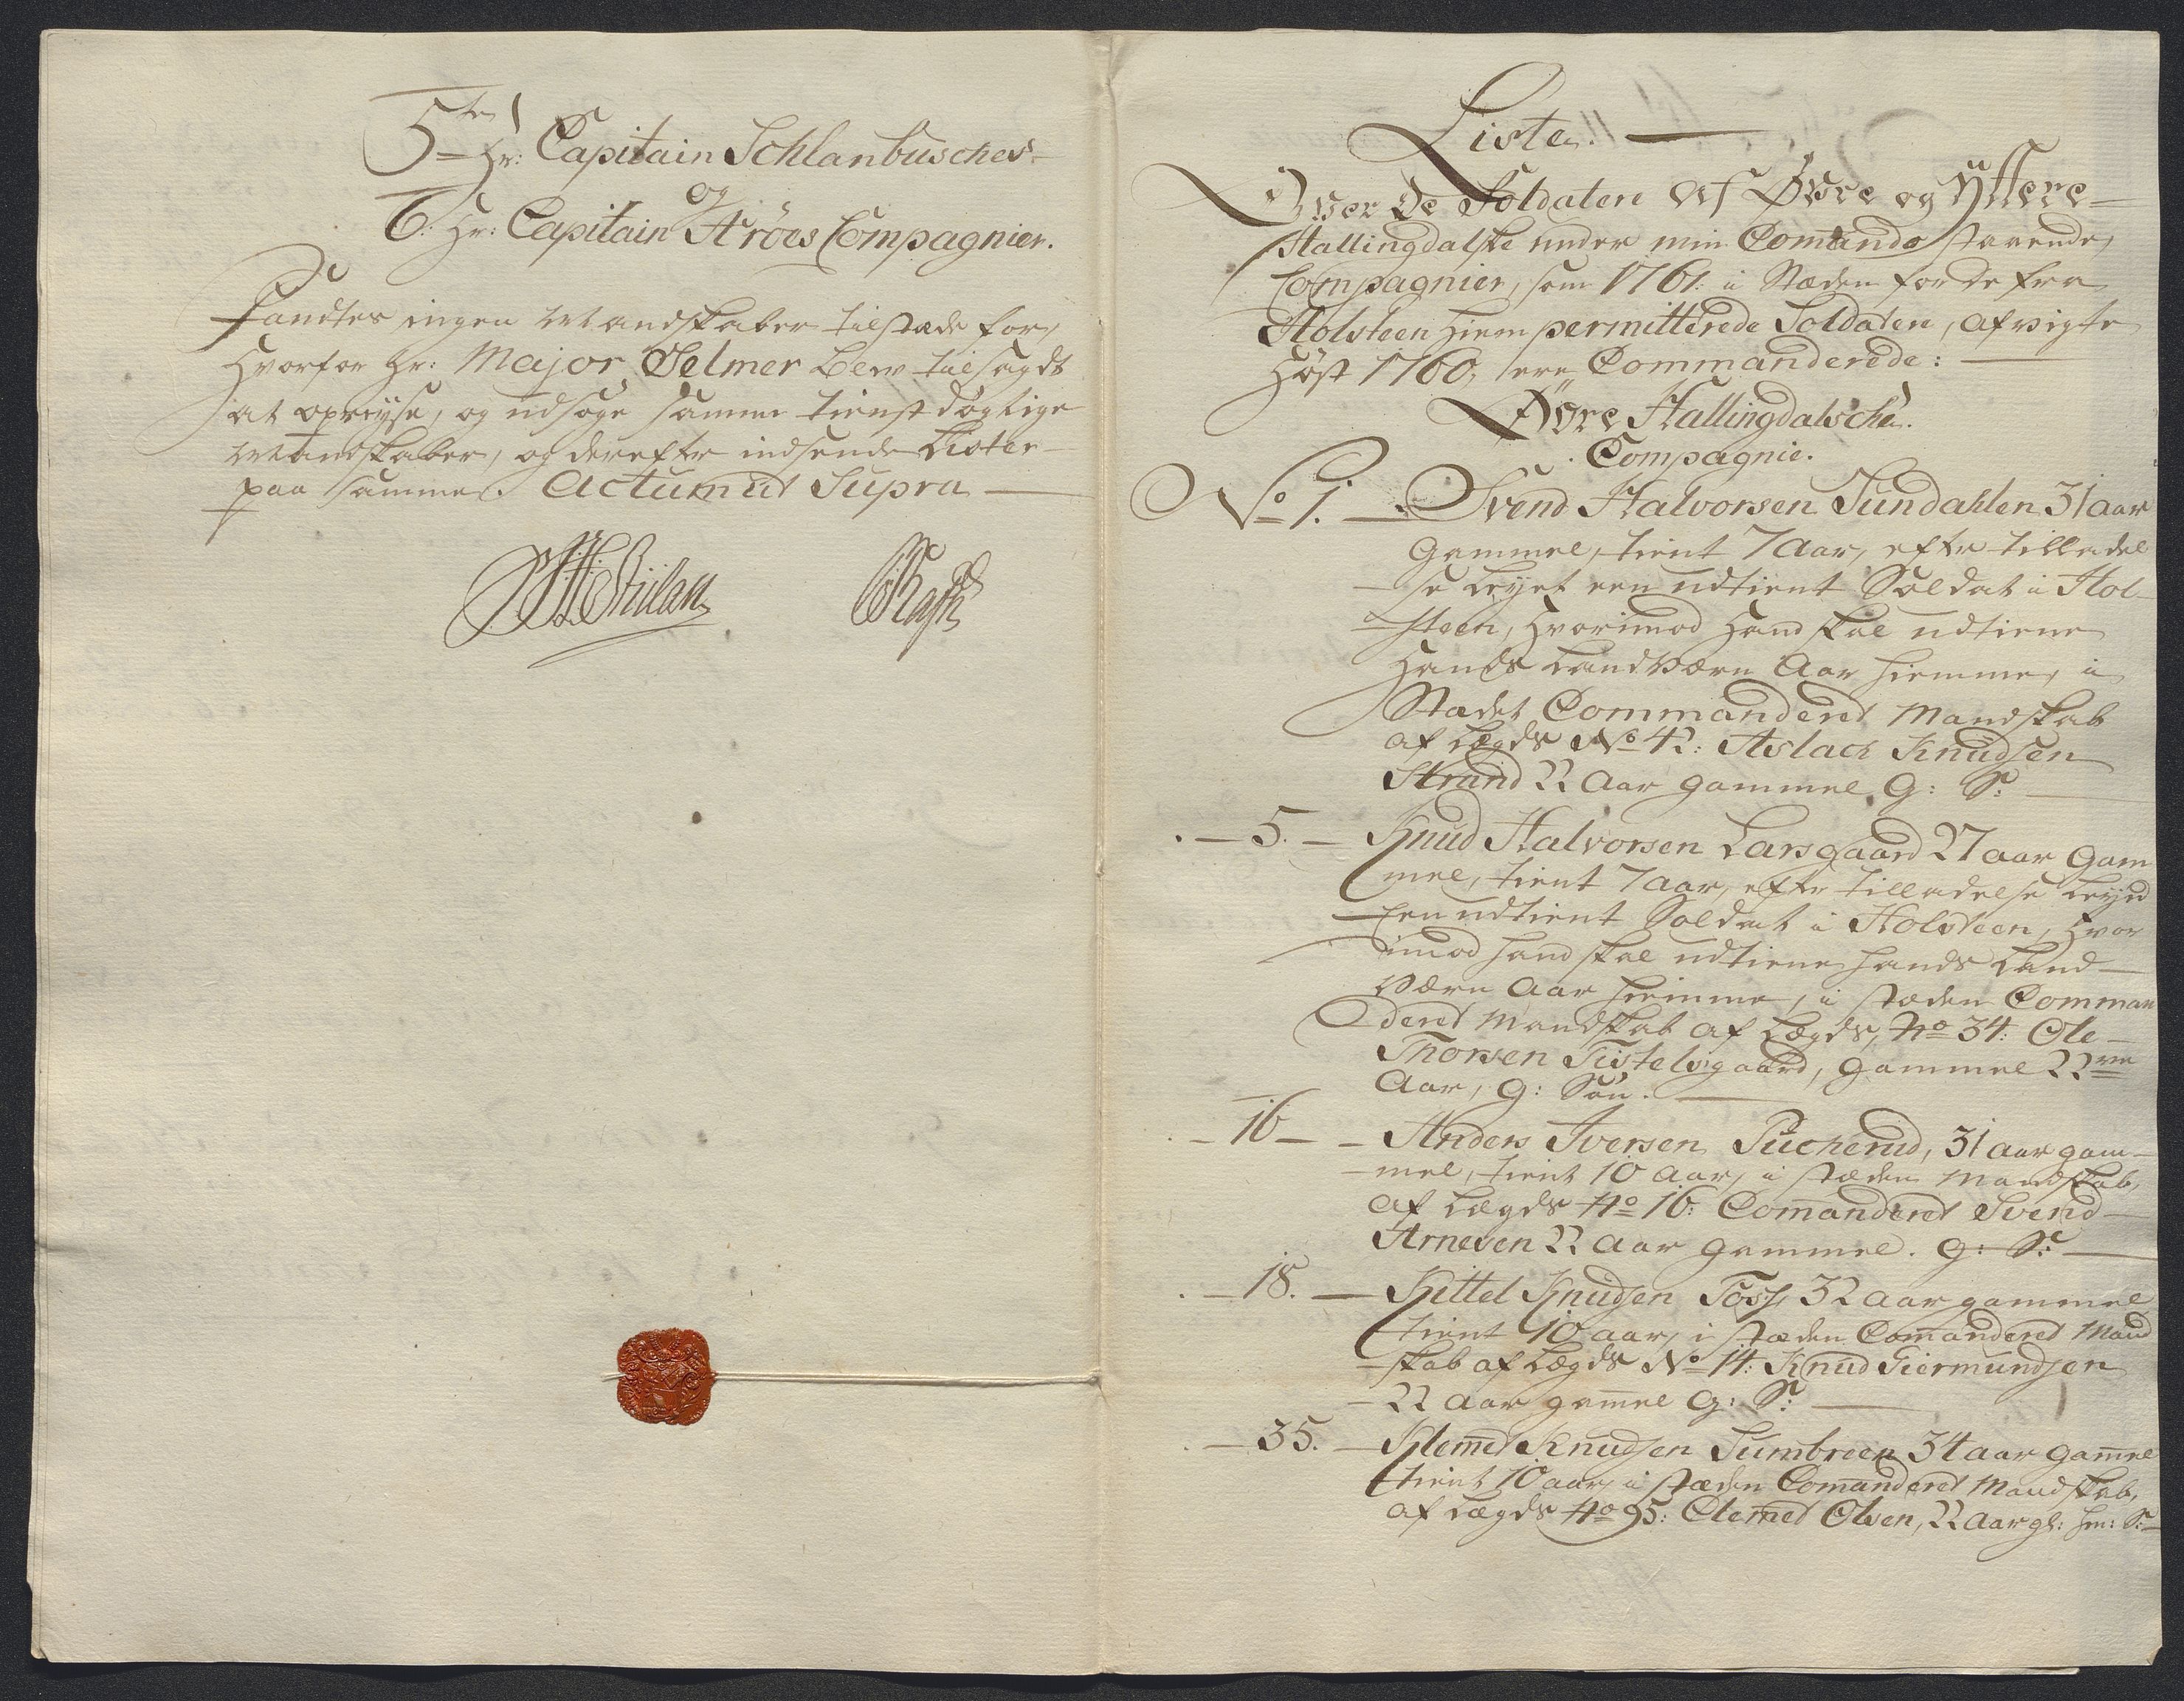 5te Hr: Capitain Schlanbusches
og
6. Hr: Capitain Ströes Compagnier.
Fandtes ingen Mandskaber tilstæde for,
hvorfor Hr: Major Selmer blew tilsagdt
at opreyse, og udsøge samme tienstdøgtige
Mandskaber, og derefter indsende Lister
paa samme. Actum ut Supra
Liste.
Over De Soldater Af Øvre og Ÿttere
Hallingdalske under min Comando staaende,
Compagnier, som 1761: i Stæden for de fra
Holsteen hiempermitterede Soldater, afvigte
Høst 1760, ere Commanderede:
Øvre Hallingdalsche.
Compagnie.
No 1. Svend Halvorsen Sundahlen 31 aar
Gammel, tient 7 Aar, efter tilladel
se leyet een udtient Soldat i Hol
steen, hvorimod hand skal udtiene
hands Landværn Aar hiemme, i
Stædet Commanderet Mandskab
af Lægds No 42: Aslach Knudsen
Strand 22 Aar gammel, G: S:
5. Knud Halvorsen Larsgaard 27 aar Gam
mel, tient 7 aar, efter tilladelse leyed
Een udtient Soldat i Holsteen, hvor
imod hand skal udtiene hands Land
værn Aar hiemme, i stæden Comman
deret Mandskab af Lægds, No 34: Ole
Thorsen Tistelsgaard, gammel 22ve
Aar, G: Søn.
16 Anders Iversen Pucherud, 31 aar gam
mel, tient 10 aar, i stæden Mandskab,
af Lægds No 16: Comanderet Svend
Arnesen 22 aar gammel. G: S:
18. Kittel Knudsen Foss, 32 aar gammel
tient 10 aar, i stæden Comanderet Mand
skab af Lægds No 14: Knud Giermundsen
22 aar gamel G: S:
35. Klemet Knudsen Sumbreen 34 aar gamel
tient 10 aar, i stæden Comanderet Mandskab,
af Lægds No 95: Clemet Olsen, 22 aar gl: G: S: